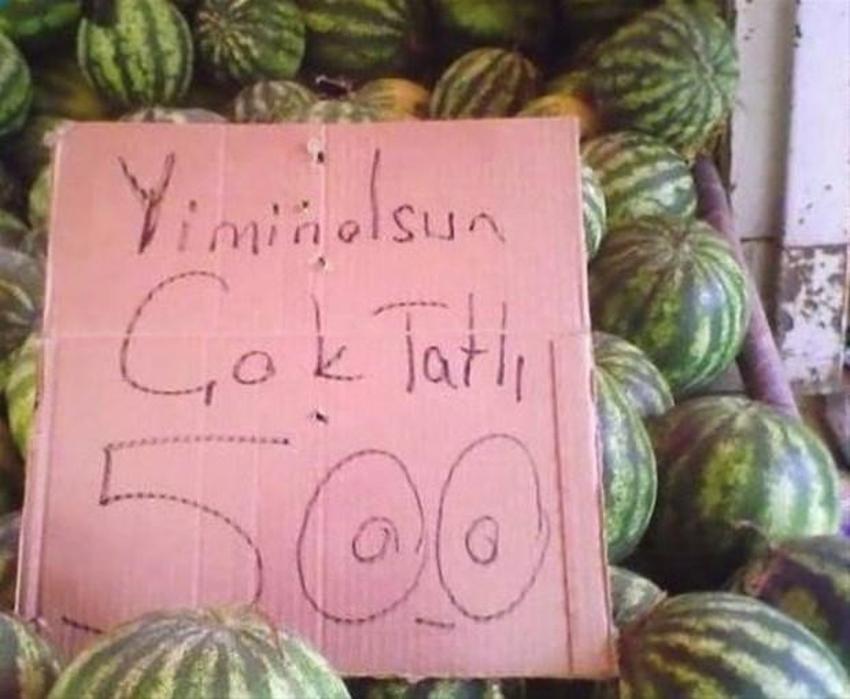 Yiminolsun
Çok Tatlı
500